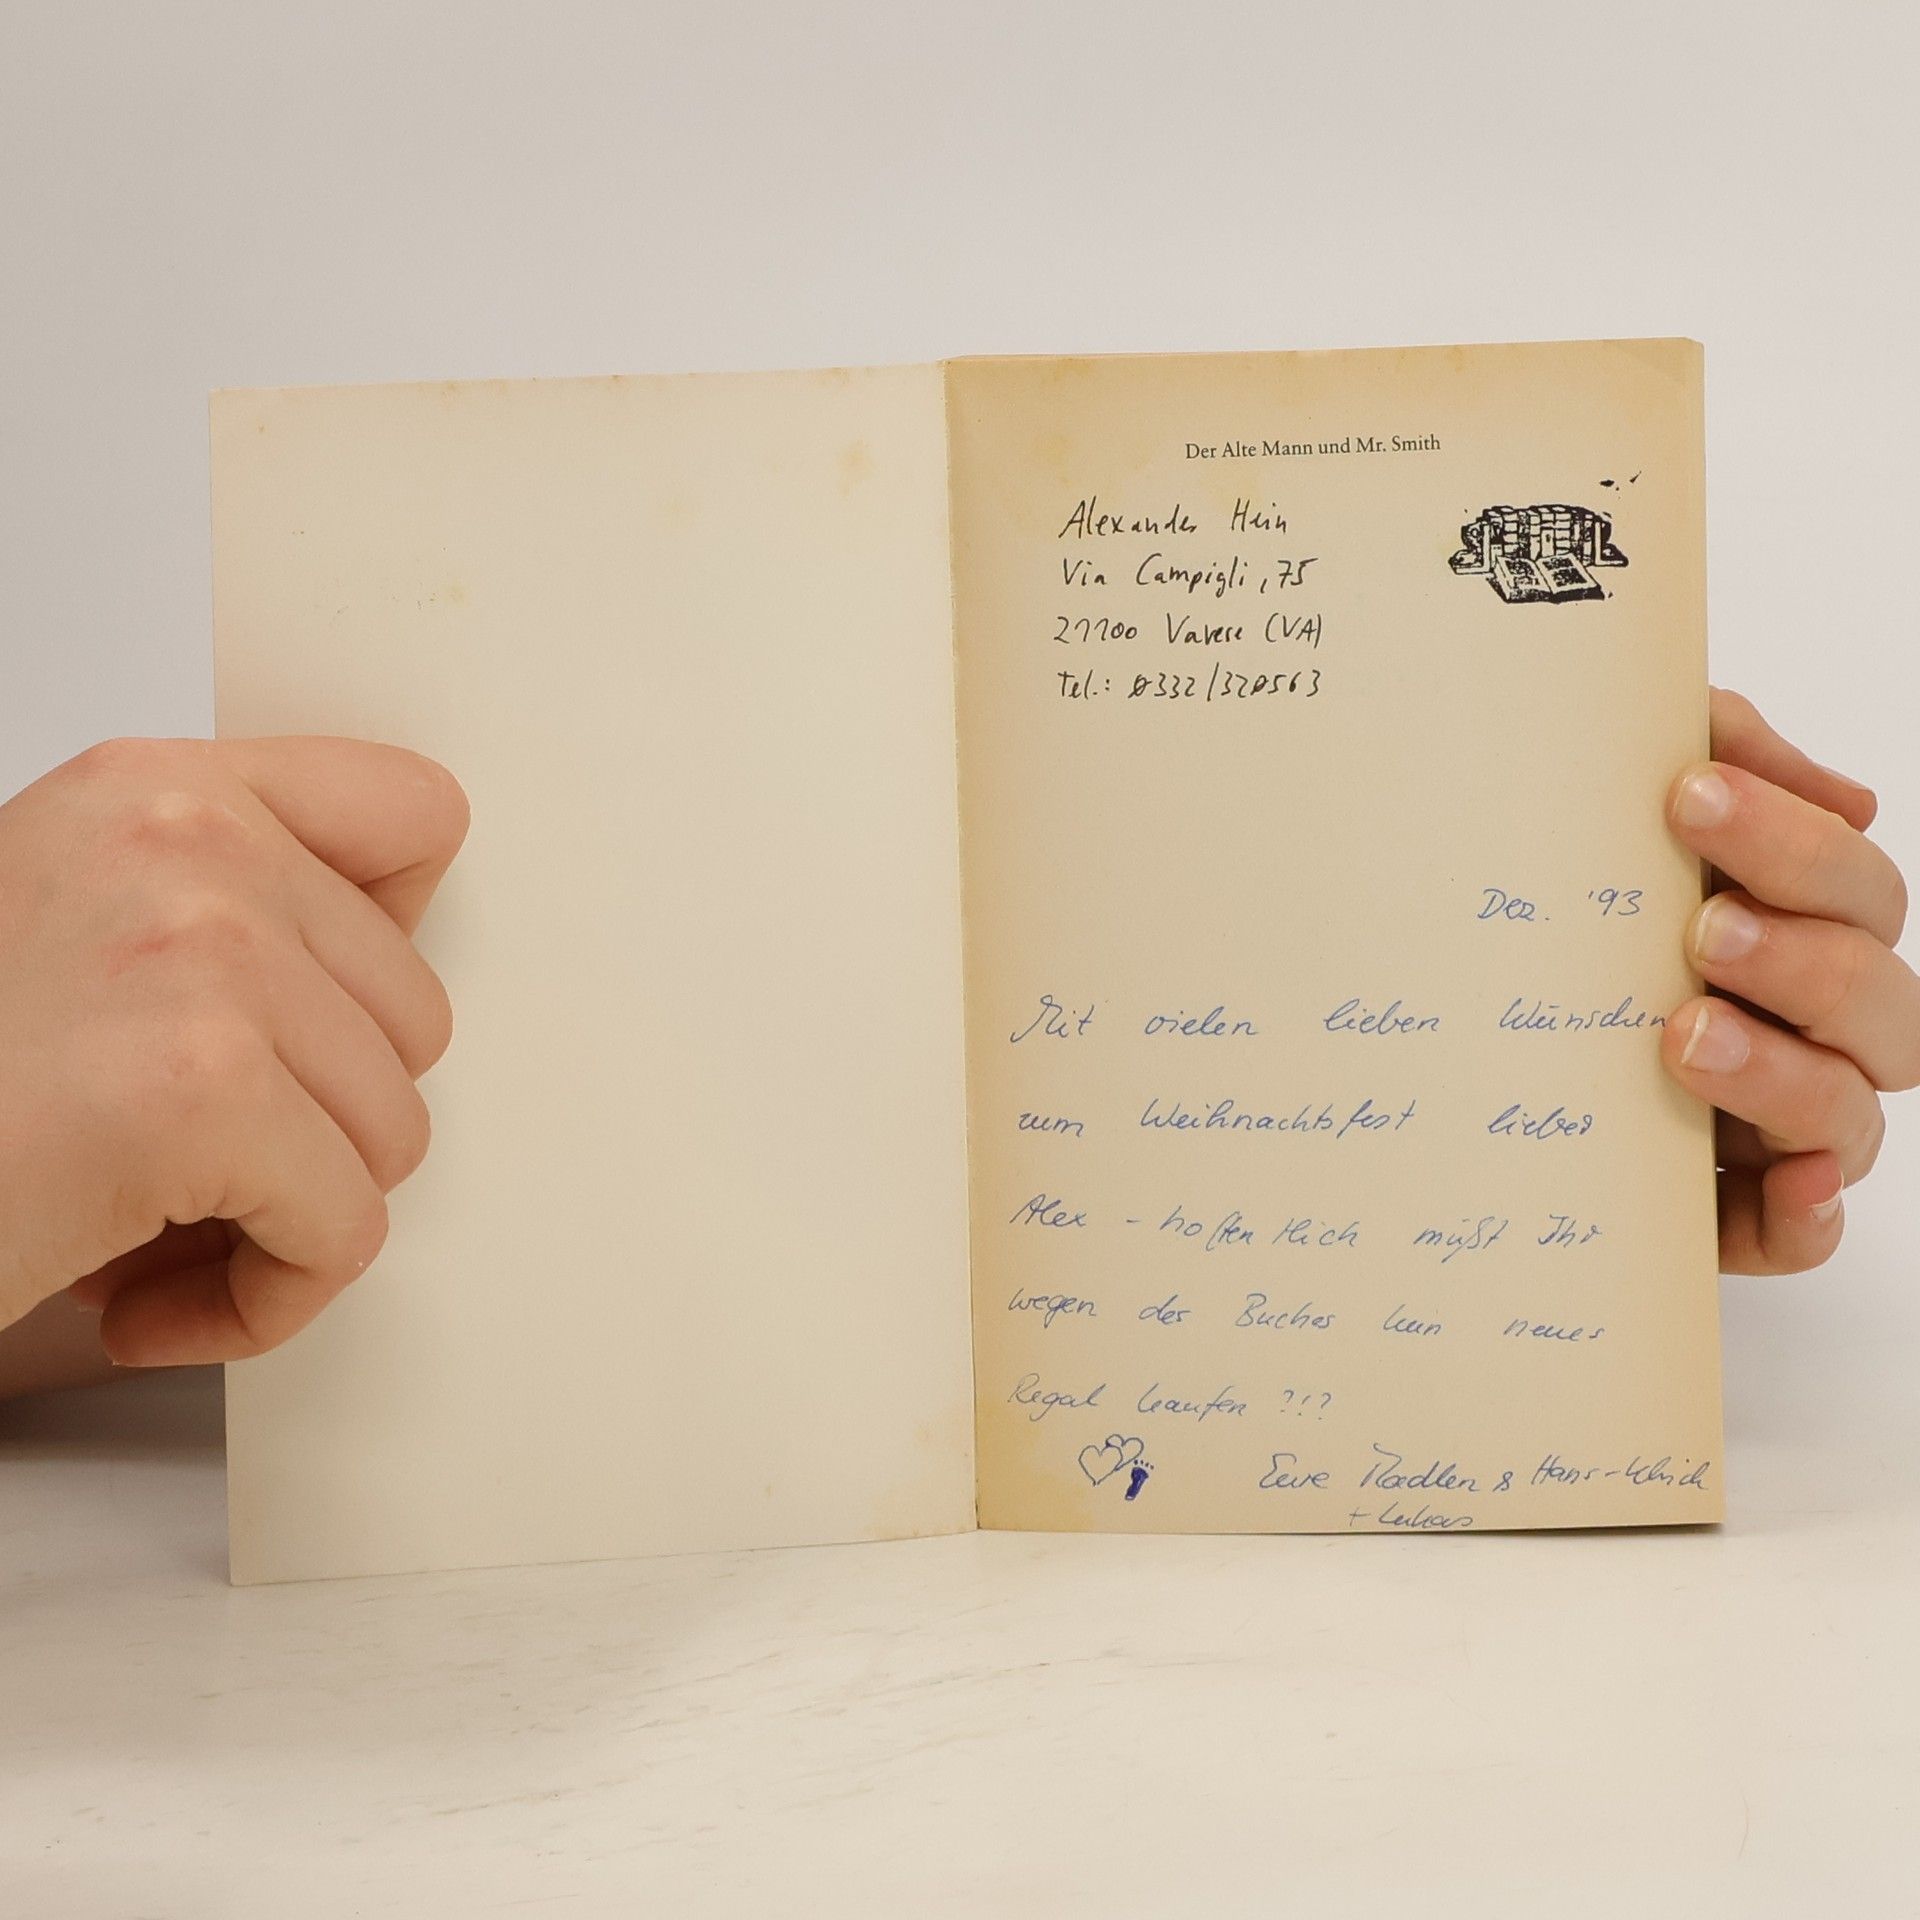 Der Alte Mann und Mr. Smith
Alexander Hein
Via Campigli, 75
21100 Varese (VA)
Tel.: 0332/320563
Dez. '93
Mit vielen lieben Wünschen
zum Weihnachtsfest lieber
Alex - hoffentlich müßt Ihr
wegen des Buches kein neues
Regal kaufen ?!?
& Hans-Ulrich
+ Lukas